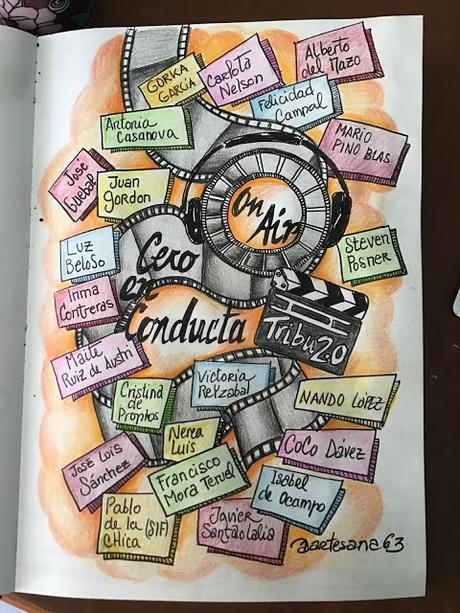 GORKA
GARCÍA
Carlota
Nelson
Alberto
del Mazo
Felicidad
Campal
Antonia
Casanova
MARIO
PINO BLAS
José
Guedal
Juan
gordon
On
Air
Luz
Beloso
Cero
en
Conducta
Steven
Posner
Irma
Contreras
Tribu 2.0
Maite
Ruiz de Austri
Cristina
de Propios
Victoria
Retzabal
NANDO LÓPEZ
Nerea
Luis
COCO Dávez
José Lois
Sánchez
Francisco
Mora Teruel
Isabel
de Ocampo
Pablo
de la (SIF)
CHica
Javier
Santaolalla
@artesana63